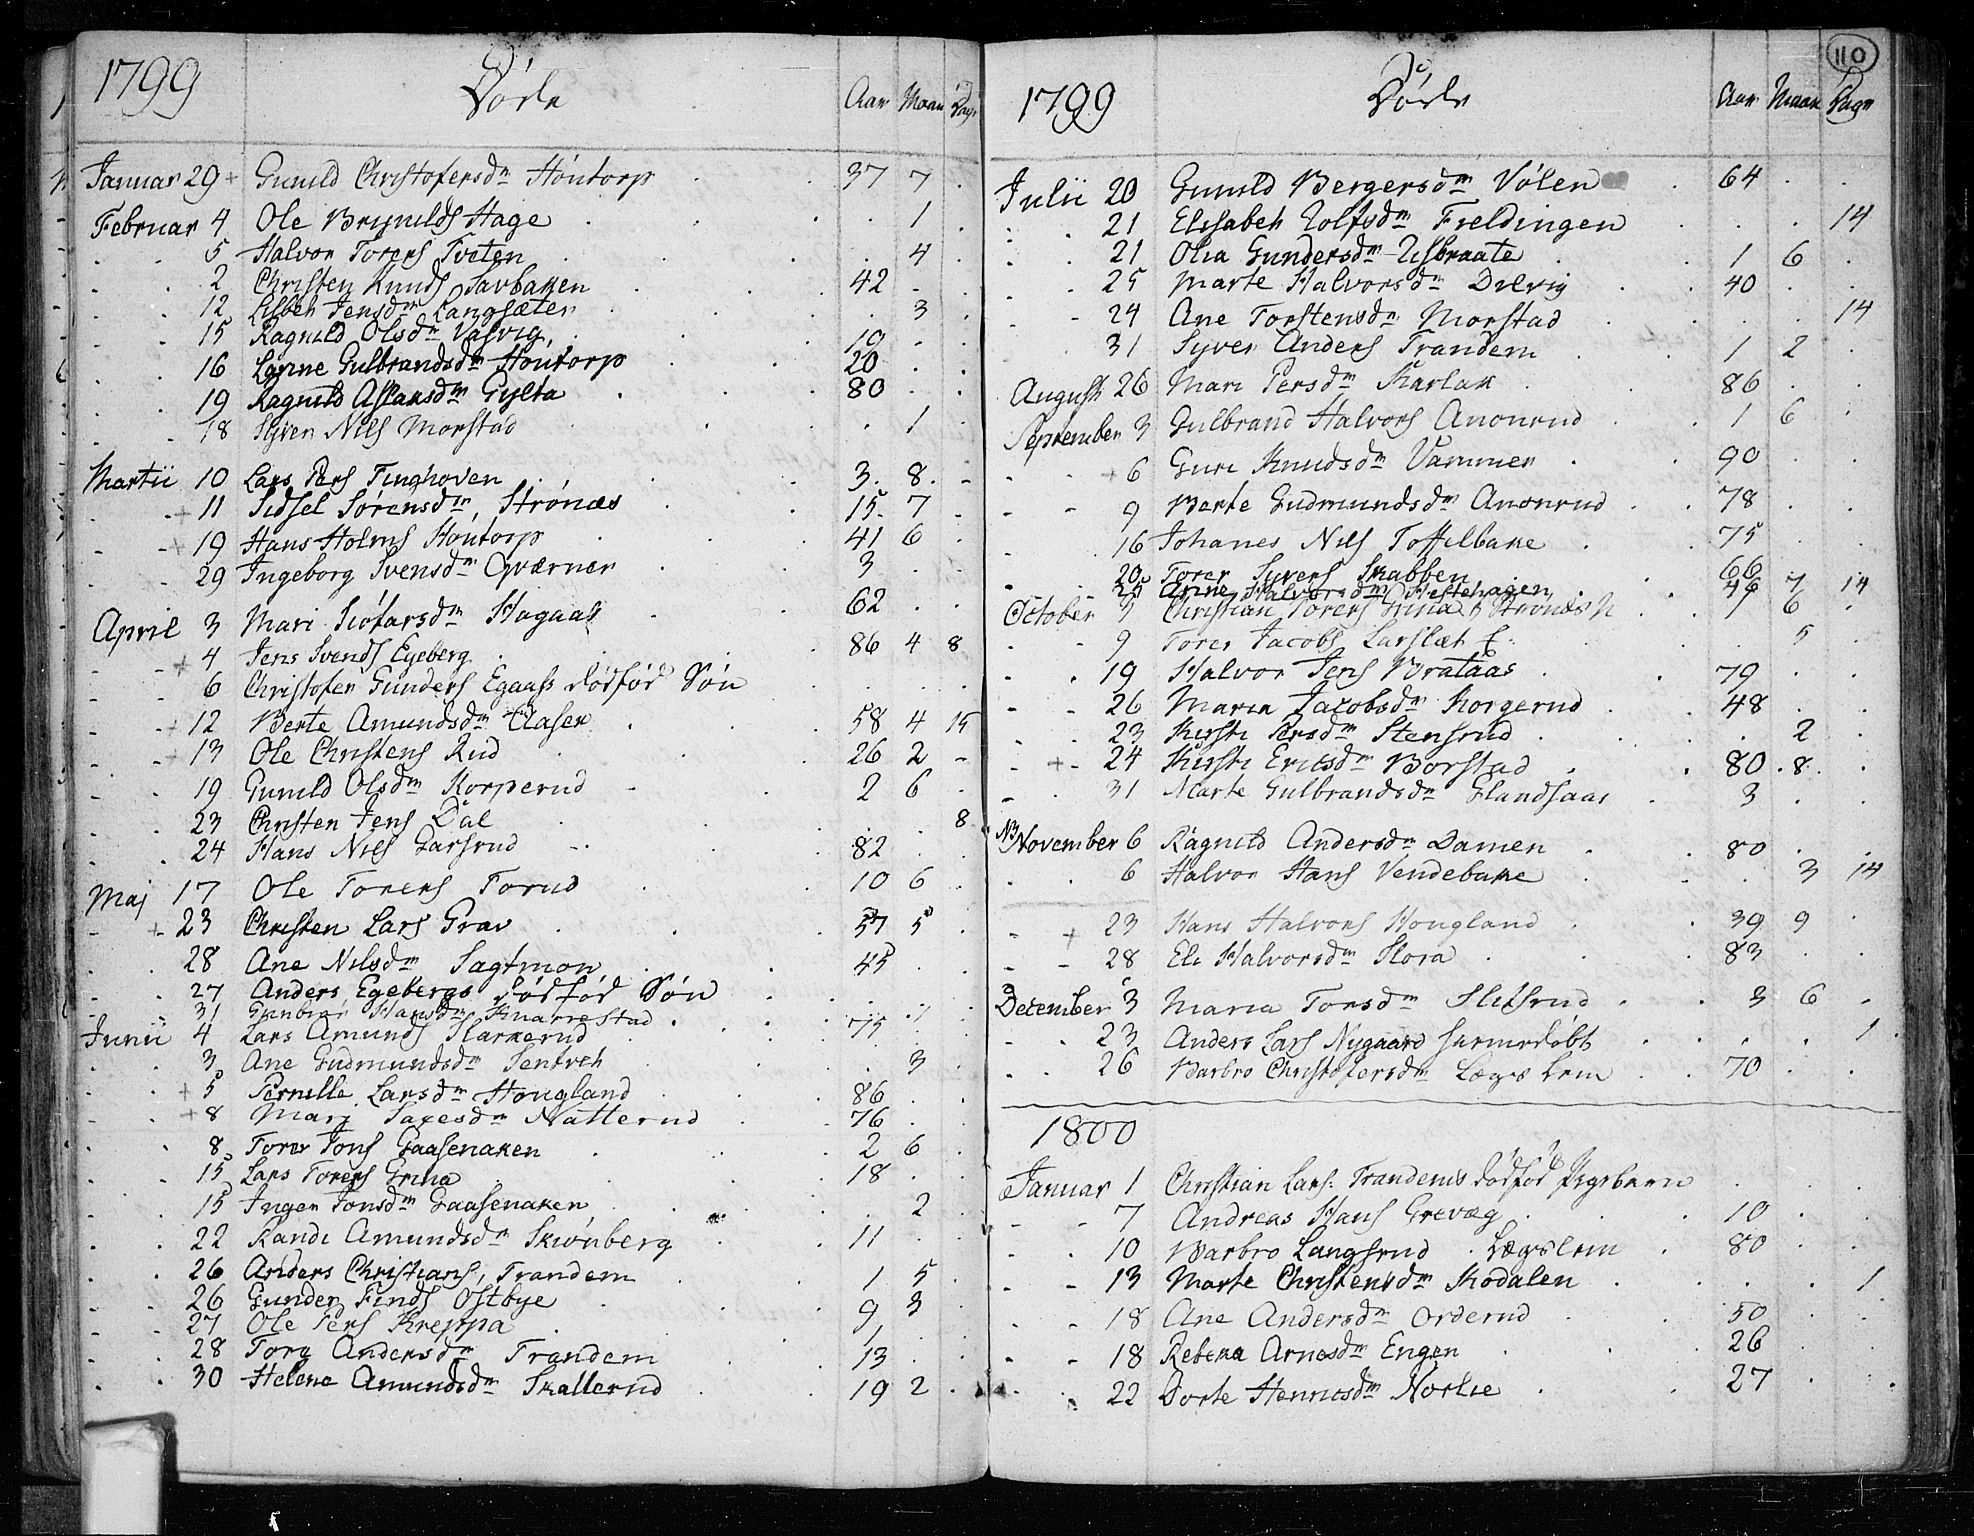 1799 Döde Aar Maan Dage
Januar 29 + Gunild Christofersdn Höntorp 37 7
Februar 4 Ole Brynilds Hage 1
5 Halvor Torers Tveten 4
2 Christen Knuds Savbaken 42
12 Lisbeh Jensdn Langsæter 3
15 Ragnild Olsdn Valvig, 10
16 Larine Gulbrandsdn Höntorp 20
19 Ragnild Aslaksdn Gylta 80
18 Syver Nils Morstad 1
Martii 10 Lars Pers Tinghoven 3. 8.
+ 11 Sidsel Sörensdn, Strönæs 15 7
+ 19 Hans Holms Höntorp 41 6
29 Ingeborg Svensdn Qværner 3
April 3 Mari Siofarsdn Hagaas 62
+ 4 Jens Svends Egeberg 86 4 8
6 Christofer Gunders Egaass dödföd Sön
+ 12 Berte Amundsdn Claser 58 4 15
+ 13 Ole Christens Rud 26 2
19 Gunild Olsdn Korperud 2 6
23 Christen Jens Dal 8
24 Hans Nils Garsrud 82
Maj 17 Ole Torers Torud 10 6
+ 23 Christen Lars Grav 57 5
28 Ane Nilsdn Sagtmon 45
27 Anders Egebergs dödföd Sön
31 Hansdn Knarrestad 1
Junii 4 Lars Amunds Harkerud 75
3 Ane Gudmundsdn Sentveh 3
+ 5 Pernille Larsdn Hougland 86
+ 8 Marj Saxesdn Natterud 76
8 Torer Jons Gaasenaken 2 6
15 Lars Torers Grina 18
15 Inger Jonsdn Gaasenaken 2
22 Randi Amundsdn Skiönberg 11
26 Anders Christians, Trandem 1 5
26 Gunder Finds Ostbye 9 3
27 Ole Pers Kreppa 9
28 Torg Andersdn Trandem 13
30 Helene Amundsdn Skallerud 19 2
110
1799 Döde Aar Maan Dage
Julii 20 Gunild Bergersdn Völen 64
21 Elisabeh Rolfsdn Fieldingen 14
21 Olia Gundersdn Risbraate 1 6
25 Marte Halvorsdn Dilevig 40
24 Ane Torstensdn Morstad 14
31 Syver Anders Trandem 1 2
August 26 Mari Persdn Karlak 86
September 3 Gulbrand Halvors Anonrud 1 6
+ 6 Guri Knudsdn Vammen 90
9 Berte Gudmundsdn Anonrud 78
16 Johanes Nils Toffelbake 75
20 Torer Syvers Skabben 66
25 Anne Halvorsdn Hestehagen 7 14
October 5 Christian Torers Grina 1 6
9 Torer Jacobs Larslæt 5
19 Halvor Jens Brataas 79
26 Maria Jacobsdn Korgerud 48
23 Kirsti Persdn Stensrud 2
+ 24 Kirsti Ericsdn Borstad 80 8
31 Marte Gulbrandsdn Glandsaas 3
NB November 6 Ragnild Andersdn Damen 80
6 Halvor Hans Vendebake 3 14
+ 23 Hans Halvors Hougland 39 9
28 Eli Halvorsdn Flora 83
December 3 Maria Torsdn Slitsrud 3 6
23 Anders Lars Nygaard hiemedöbt 1
26 Barbro Christofersdn Lægs Lem 70
1800
Januar 1 Christian Lars: Trandems dödföd Pigebarn
7 Andreas Hans Grevæg 10
10 Barbro Langsrud Lægslem 80
13 Marte Christensdn Kodalen 1
18 Ane Andersdn Orderud 50
18 Rebeka Arnesdn Engen 26
22 Dorte Hennesdn Norlie 27